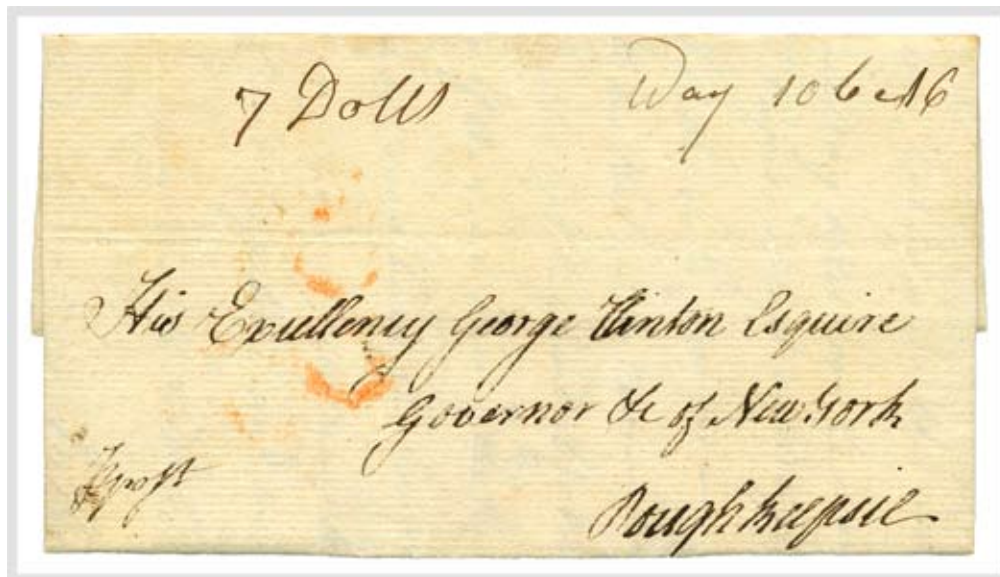 7 Dolls
His Excellency George Clinton Esquire
Governor &c of New York
Poughkeepsie